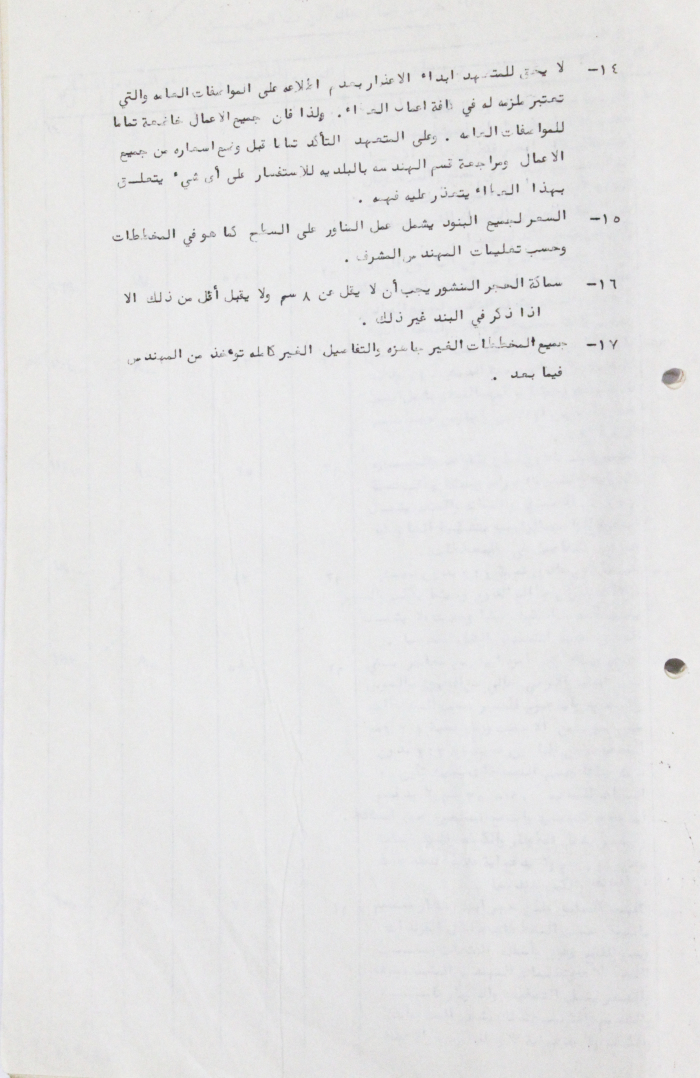 ١٤- لا يحق للمتعهد ابداء الاعذار بعدم اطلاعه على المواصفات العامه والتي
تعتبر ملزمه له في كافة اعمال العطاء . ولذا فان جميع الاعمال خاضعة تماما
للمواصفات العامه . وعلى المتعهد التأكد تماما قبل وضع اسعاره من جميع
الاعمال ومراجعة قسم الهندسه بالبلديه للاستفسار على أى شيء يتعلق
بهذا العطاء يتعذر عليه فهمه .
١٥- السعر لجميع البنود يشمل عمل المناور على السطح كما هو في المخططات
وحسب تعليمات المهندس المشرف .
١٦- سماكة الحجر المنشور يجب أن لا يقل عن ٨ سم ولا يقبل أقل من ذلك الا
اذا ذكر في البند غير ذلك .
١٧- جميع المخططات الغير جاهزه والتفاصيل الغير كامله تؤخذ من المهندس
فيما بعد .